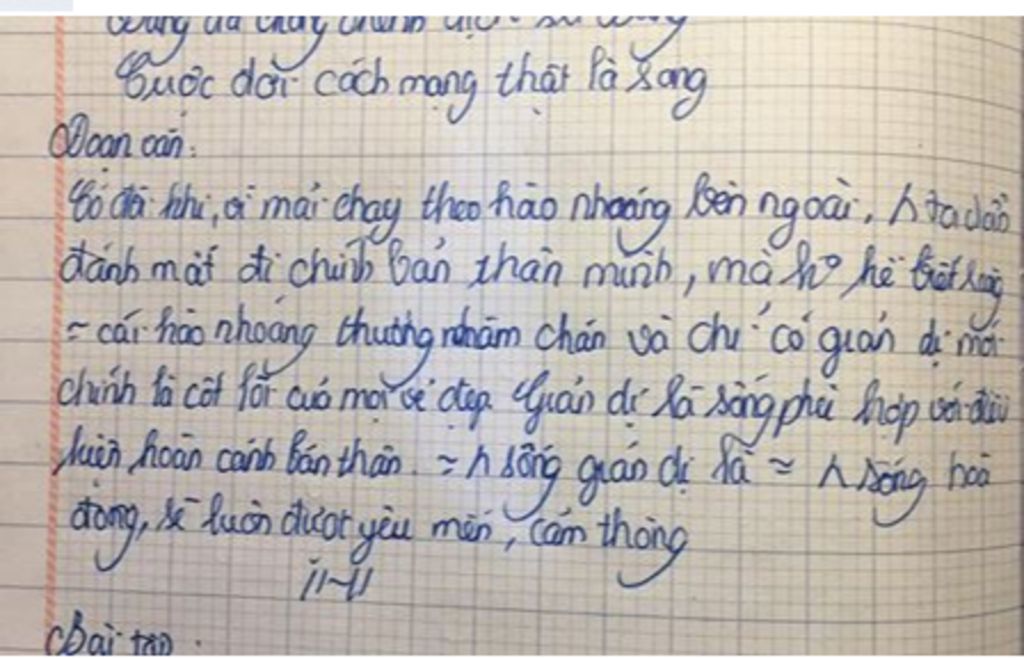 Cuộc đời cách mạng thật là sang
Đoạn căn:
Có đôi khi, vì mải chạy theo hào nhoáng bên ngoài, ^ ta dần
đánh mất đi chính bản thân mình, mà ko hề biết rằng
≈ cái hào nhoáng thường nhàm chán và chỉ có giản dị mới
chính là cốt lõi của mọi vẻ đẹp. Giản dị là sống phù hợp với điều
kiện hoàn cảnh bản thân. ≈ ^ sống giản dị là ≈ ^ sống hoà
đồng, sẽ luôn được yêu mến, cảm thông
Bài tập.